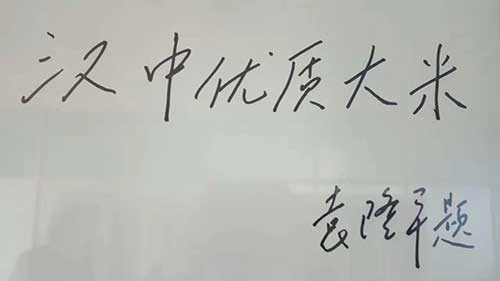 汉中优质大米
袁隆平题